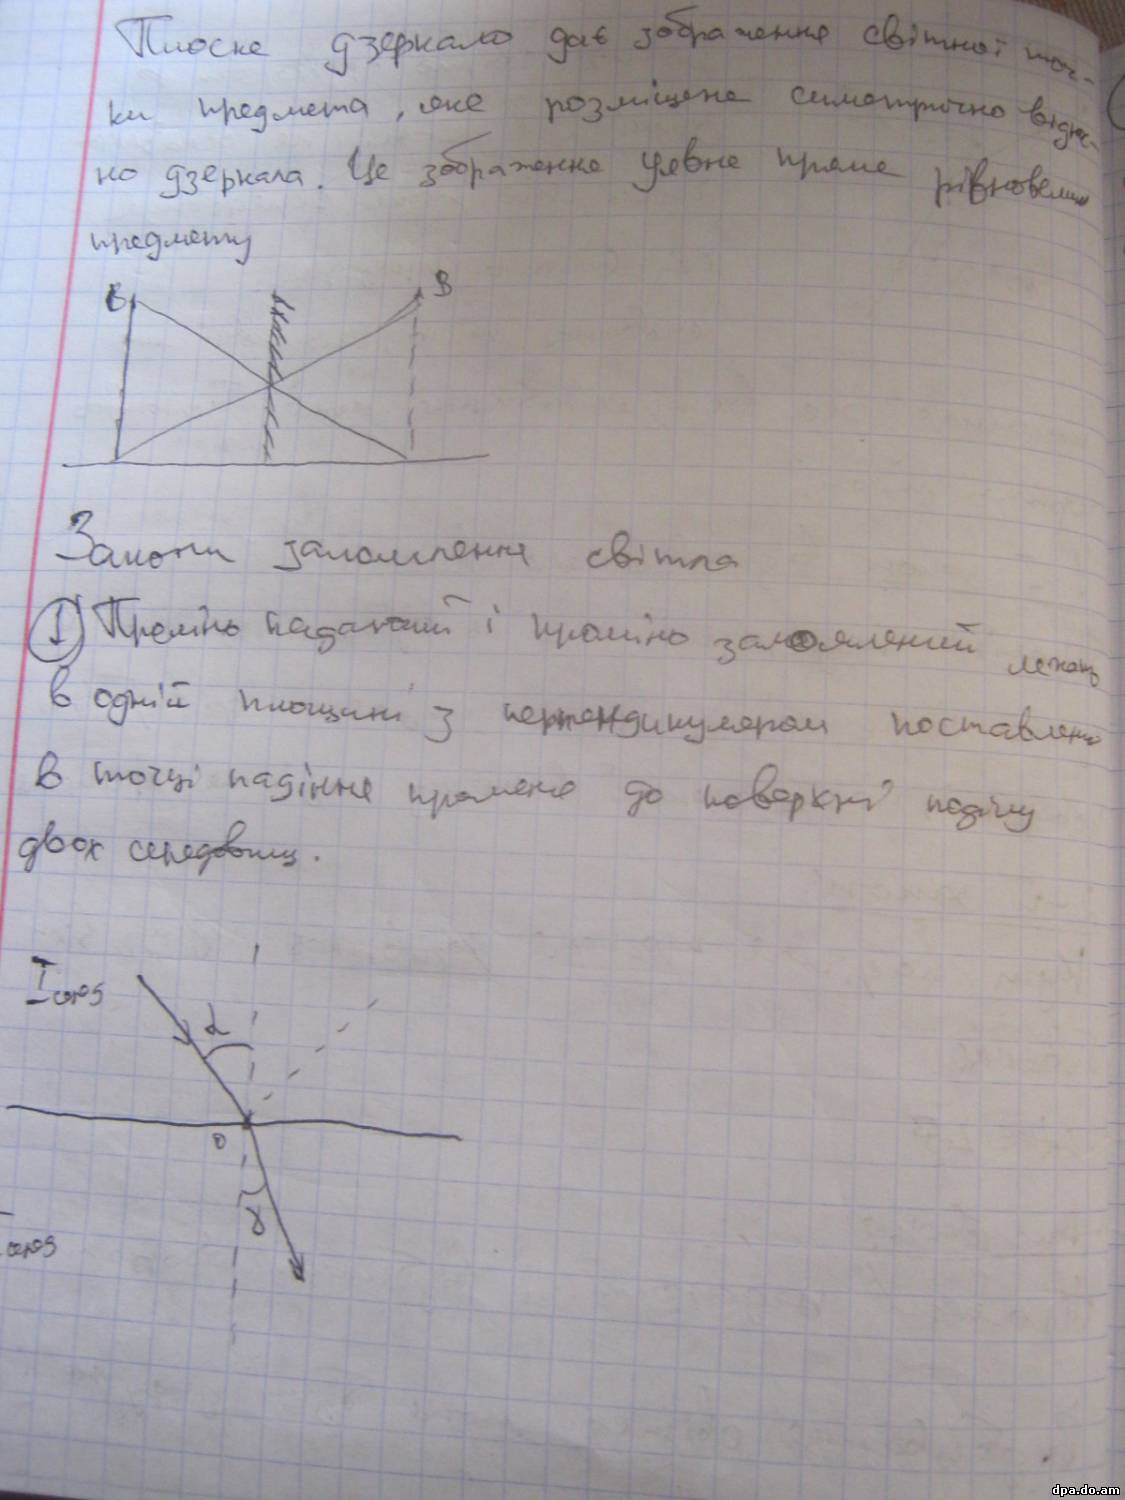 Плоске дзеркало дає зображення світної точ-
ки предмета, яке розміщене симетрично віднос-
но дзеркала. Це зображення уявне пряме рівновелике
предмету
B
Закони заломлення світла
I Промінь падаючий і промінь заломлений лежать
в одній площині з перпендикуляром поставлен
в точці падіння променя до поверхні поділу
двох середовищ.
I серед
α
O
γ
серед
dpa.do.am